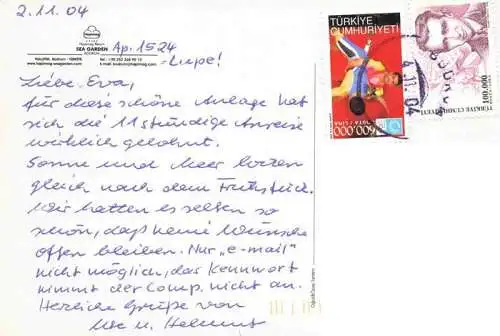 2.11.04
Hapimag Resort
SEA GARDEN
BODRUM
Ap. 1524
Liebe Eva,
für diese schöne Anlage hat
sich die 11stündige Anreise
wirklich gelohnt.
Sonne und Meer locken
gleich nach dem Frühstück.
Wir hatten es selten so
schön, daß keine Wünsche
offen bleiben. Nur "e-mail"
nicht möglich, das Kennwort
nimmt der Comp. nicht an.
Herzliche Grüße von
Ute u. Helmut
TÜRKİYE
CUMHURİYETİ
600.000
LİRA
4.11.04
100.000
TÜRKİYE CUMHURİYETİ